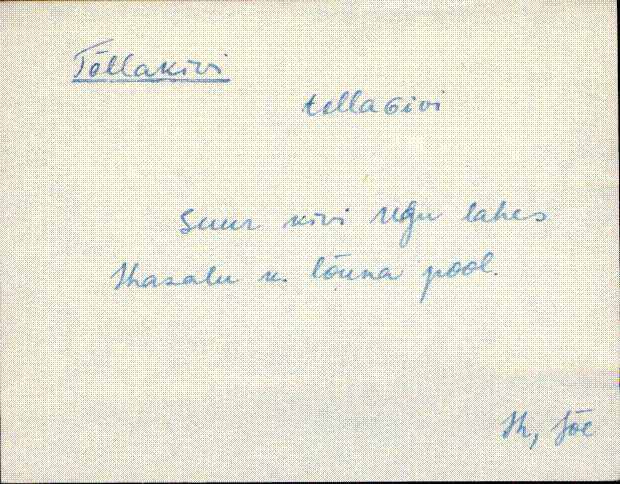 Tõllakivi
tellaGivi
Suur kivi Ulgu lahes
Ihasalu k. lõuna pool.
Ih, Jõe